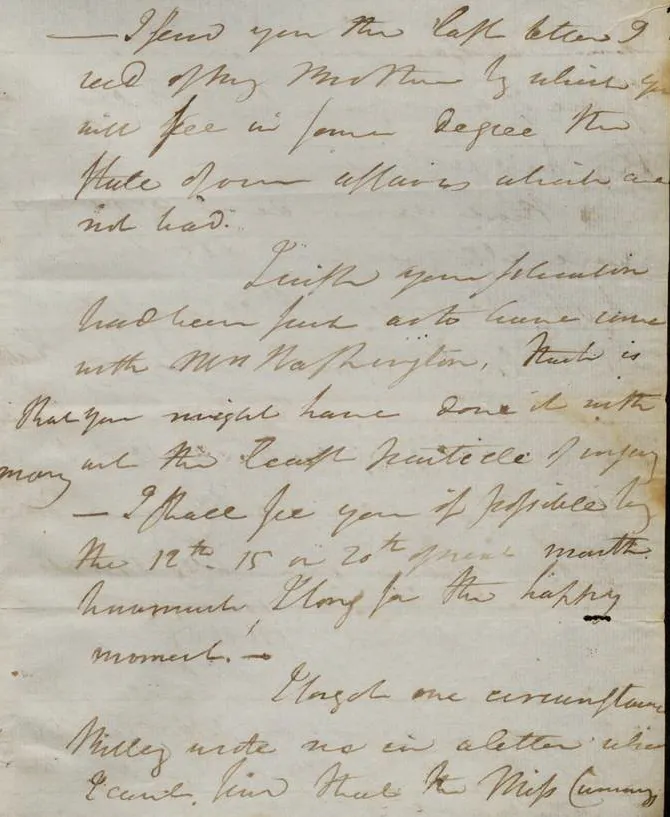 — I send you the last letter I
recd of my Mother by which you
will see in some degree the
State of our affairs which are
not bad.
I wish your situation
had been such as to have come
with Mrs Washington, that is
that you might have done it with
out the least particle of injury
— I shall see you if possible by
the 12th. 15 or 20th of next month.
how much I long for the happy
moment! —
I forgot one circumstance
wrote us in a letter which
I cant find that the Miss